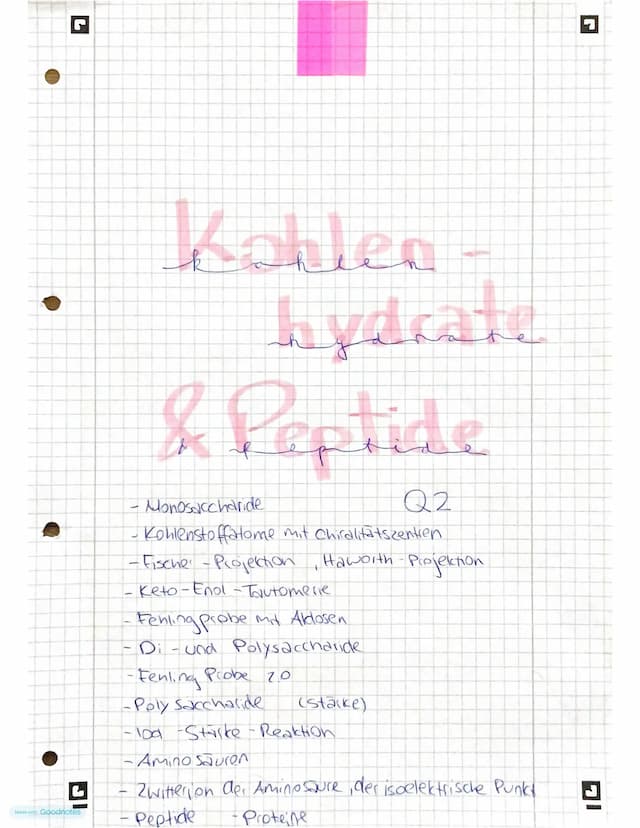 Kohlen-
kohlen
hydrate
hydrate
& Peptide
& Peptide
Q2
- Monosaccharide
- Kohlenstoffatome mit Chiralitätszentren
- Fischer-Projektion, Haworth-Projektion
- Keto-Enol-Tautomerie
- Fehlingprobe mit Aldosen
- Di- und Polysaccharide
- Fehling Probe 2.0
- Poly saccharide (Stärke)
- Iod-Stärke-Reaktion
- Aminosäuren
- Zwitterion der Aminosäure, der isoelektrische Punkt
- Peptide - Proteine
Goodnotes